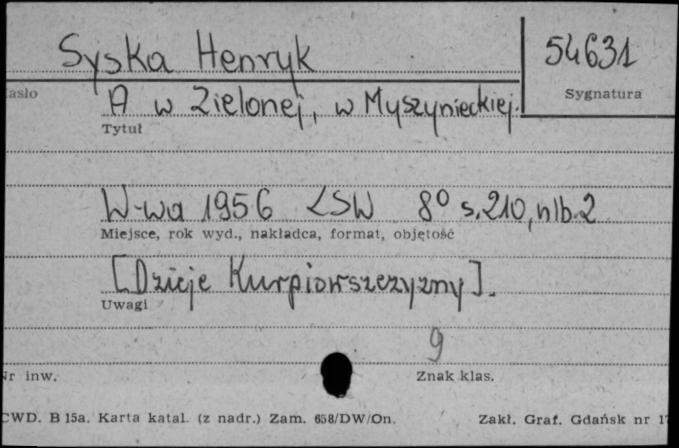 Syska Henryk
54631
asło
Sygnatura
A w Zielonej, w Myszynieckiej.
Tytuł
W-wa 1956 LSW 8° s. 210, nlb. 2
Miejsce, rok wyd., nakładca, format, objętość
[Dzieje Kurpiowszczyzny].
Uwagi
9
Nr inw.
Znak klas.
CWD. B 15a. Karta katal. (z nadr.) Zam. 658/DW/On.
Zakł. Graf. Gdańsk nr 1